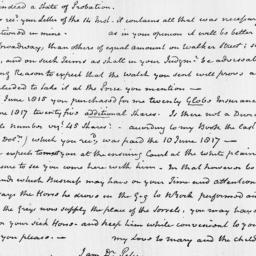 indeed a State of Probation.
rec.d your letter of the 14 Inst. it contains all that was necessary
tioned in mine - as in your opinion it will be better
Broadway, than others of equal amount on Walker Street; s
, and on such Terms as shall in your Judgmt. be advisable
ing Reason to expect that the watch you sent will prove a
cluded to take it at the Price you mention —
June 1815 you purchased for me twenty Globe Insuran
une 1817 twenty five additional Shares. Is there not a
number viz. 45 Shares? - according to my Book the last
Dot.) which you rec.d, was paid the 10 June 1817 —
expect to meet you at the ensuing Court at the white plain
sure to see you come here with him. In that however to
and which Business may have on your Time and attention
says the Horse he drove in the Gig to York performed
the Grey mare supply the place of the Sorrels, you may have
or your sick Horse - and keep him while convenient to you
you please. — my Love to Mary and the child
I am Dr. Peter